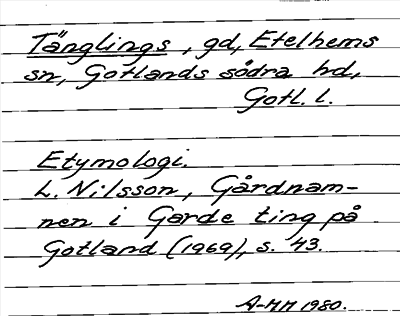 Tänglings, gd, Etelhems
sn, Gotlands södra hd,
Gotl. l.
Etymologi.
L. Nilsson, Gårdnam-
nen i Garde ting på
Gotland (1969), s. 43.
A-MM 1980.